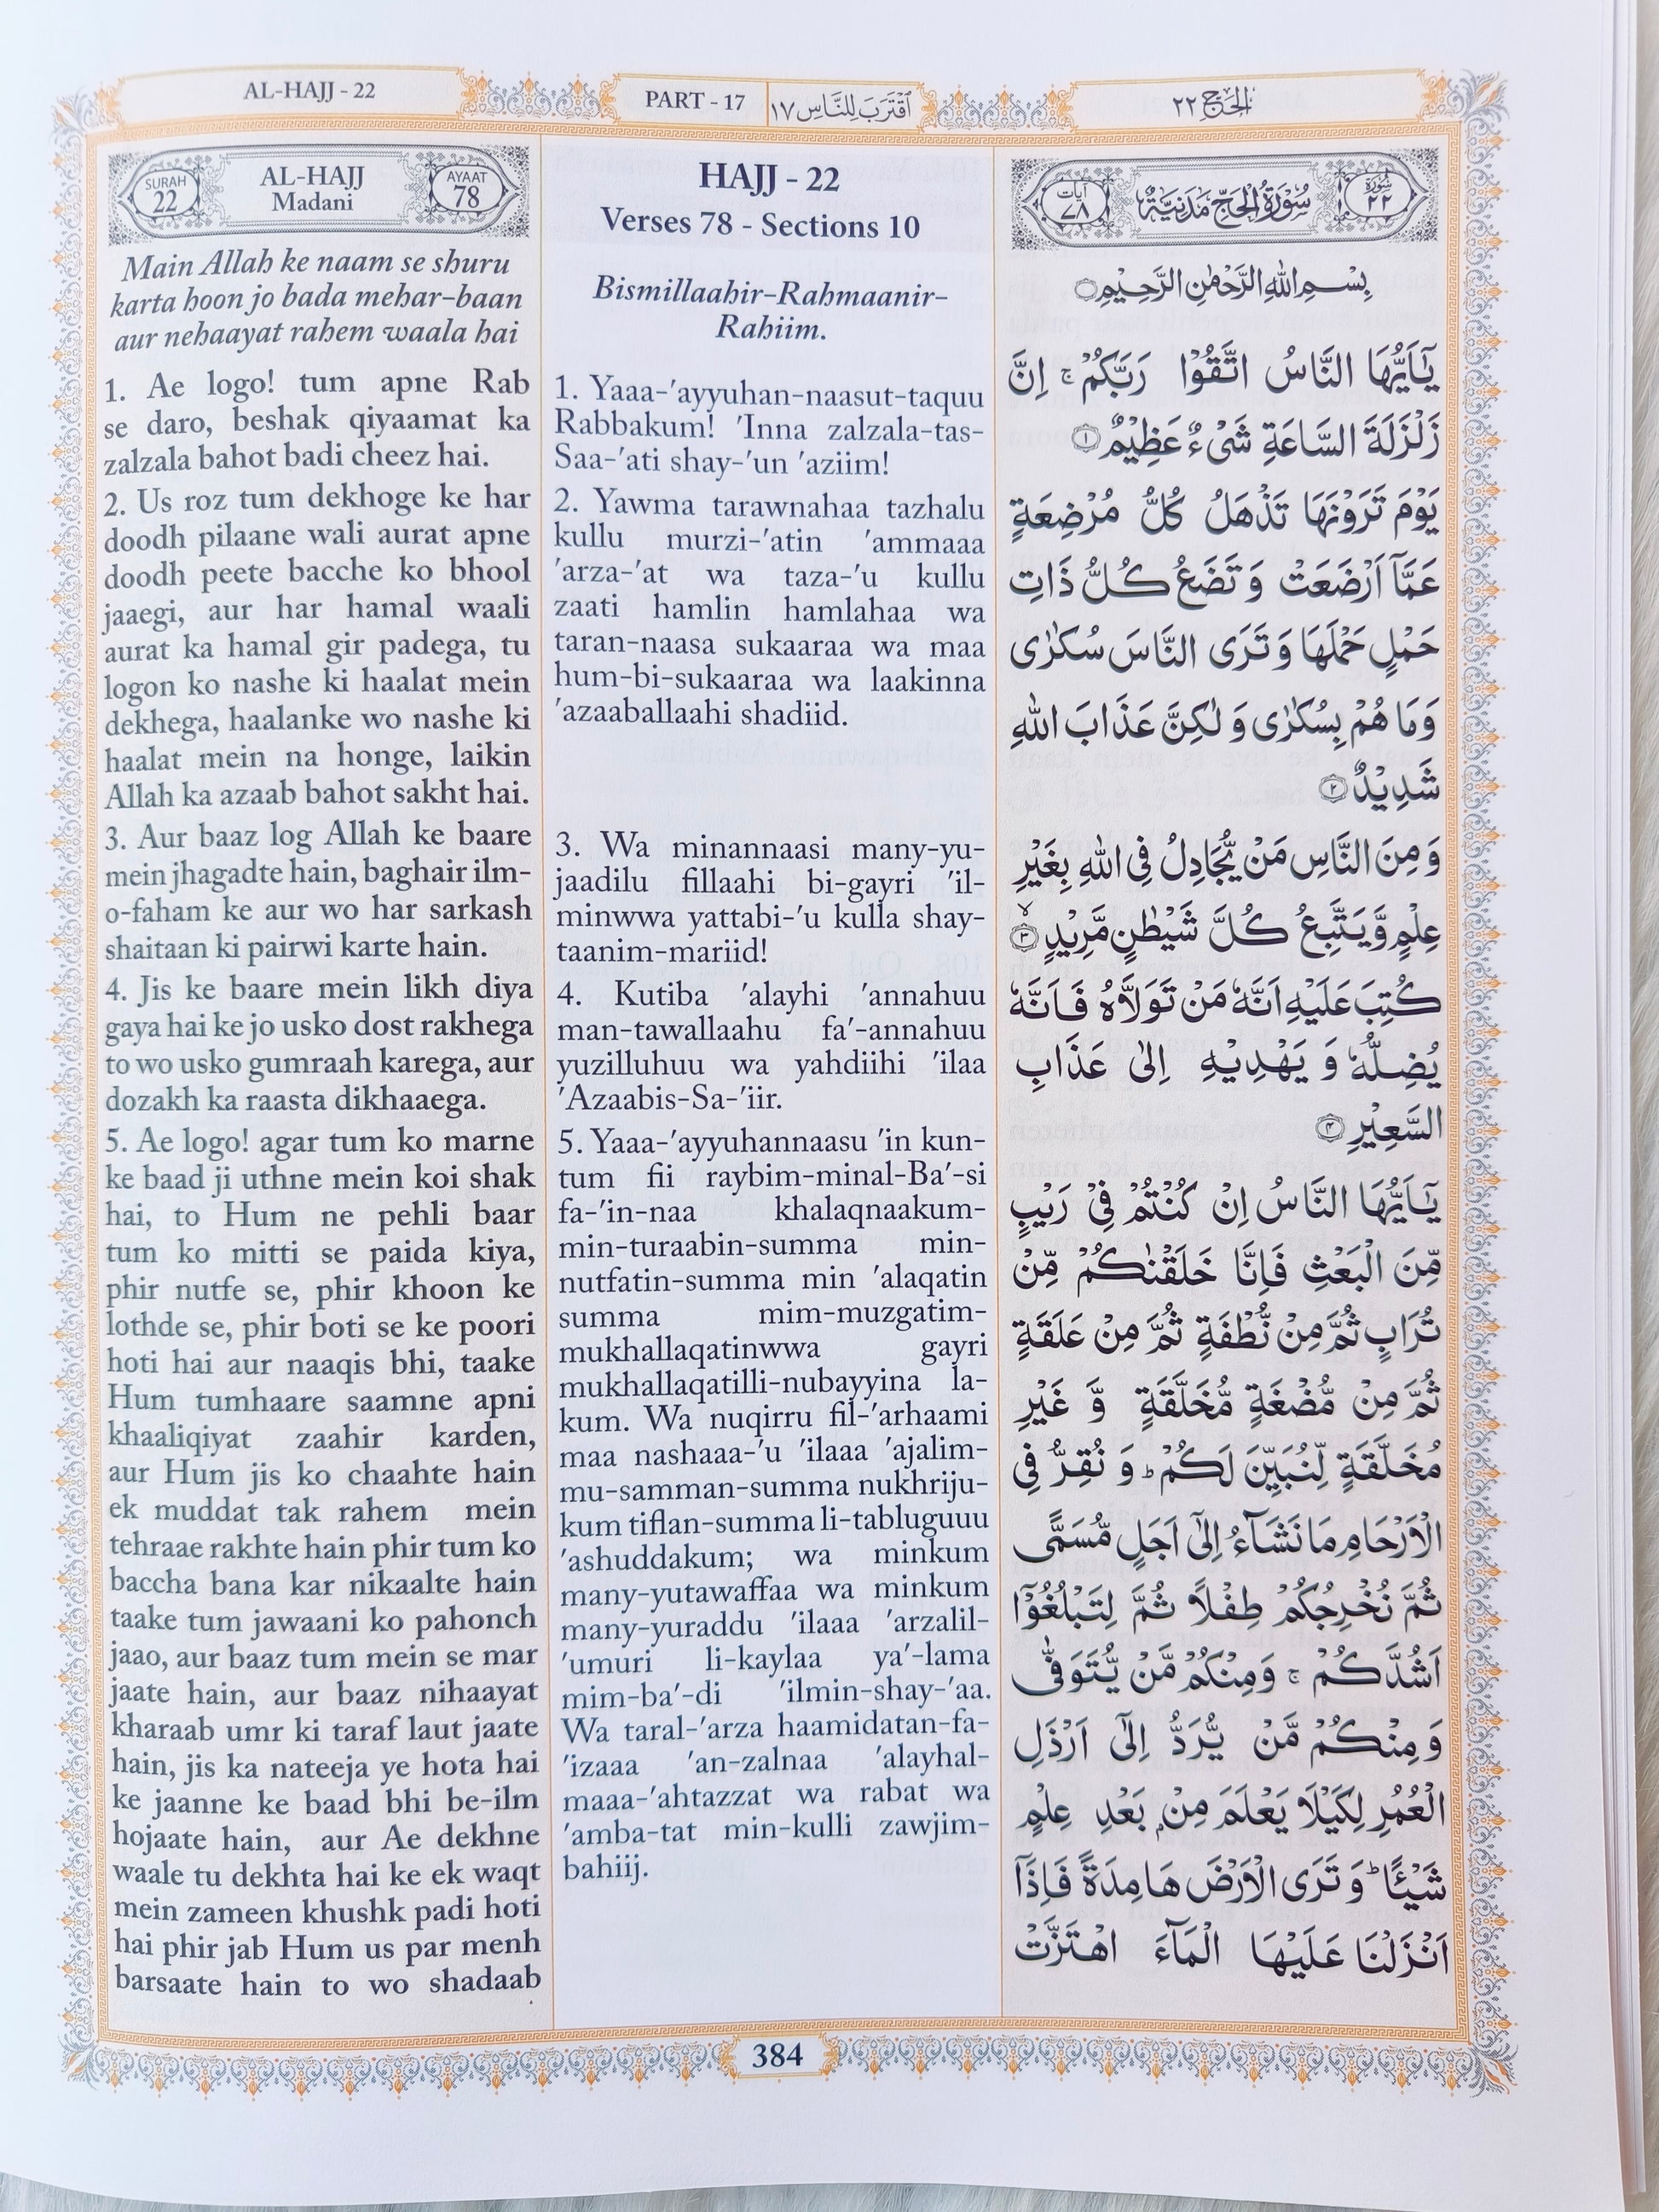 AL-HAJJ - 22
PART - 17
اَقْتَرَبَ لِلنَّاسِ ١٧
الحَجّ ٢٢
SURAH
22
AL-HAJJ
Madani
AYAAT
78
Main Allah ke naam se shuru
karta hoon jo bada mehar-baan
aur nehaayat rahem waala hai
1. Ae logo! tum apne Rab
se daro, beshak qiyaamat ka
zalzala bahot badi cheez hai.
2. Us roz tum dekhoge ke har
doodh pilaane wali aurat apne
doodh peete bacche ko bhool
jaaegi, aur har hamal waali
aurat ka hamal gir padega, tu
logon ko nashe ki haalat mein
dekhega, haalanke wo nashe ki
haalat mein na honge, laikin
Allah ka azaab bahot sakht hai.
3. Aur baaz log Allah ke baare
mein jhagadte hain, baghair ilm-
o-faham ke aur wo har sarkash
shaitaan ki pairwi karte hain.
4. Jis ke baare mein likh diya
gaya hai ke jo usko dost rakhega
to wo usko gumraah karega, aur
dozakh ka raasta dikhaaega.
5. Ae logo! agar tum ko marne
ke baad ji uthne mein koi shak
hai, to Hum ne pehli baar
tum ko mitti se paida kiya,
phir nutfe se, phir khoon ke
lothde se, phir boti se ke poori
hoti hai aur naaqis bhi, taake
Hum tumhaare saamne apni
khaaliqiyat zaahir karden,
aur Hum jis ko chaahte hain
ek muddat tak rahem mein
tehraae rakhte hain phir tum ko
baccha bana kar nikaalte hain
taake tum jawaani ko pahonch
jaao, aur baaz tum mein se mar
jaate hain, aur baaz nihaayat
kharaab umr ki taraf laut jaate
hain, jis ka nateeja ye hota hai
ke jaanne ke baad bhi be-ilm
hojaate hain, aur Ae dekhne
waale tu dekhta hai ke ek waqt
mein zameen khushk padi hoti
hai phir jab Hum us par menh
barsaate hain to wo shadaab
HAJJ - 22
Verses 78 - Sections 10
Bismillaahir-Rahmaanir-
Rahiim.
1. Yaaa-'ayyuhan-naasut-taquu
Rabbakum! 'Inna zalzala-tas-
Saa-'ati shay-'un 'aziim!
2. Yawma tarawnahaa tazhalu
kullu murzi-'atin 'ammaaa
'arza-'at wa taza-'u kullu
zaati hamlin hamlahaa wa
taran-naasa sukaaraa wa maa
hum-bi-sukaaraa wa laakinna
'azaaballaahi shadiid.
3. Wa minannaasi many-yu-
jaadilu fillaahi bi-gayri 'il-
minwwa yattabi-'u kulla shay-
taanim-mariid!
4. Kutiba 'alayhi 'annahuu
man-tawallaahu fa'-annahuu
yuzilluhuu wa yahdiihi 'ilaa
'Azaabis-Sa-'iir.
5. Yaaa-'ayyuhannaasu 'in kun-
tum fii raybim-minal-Ba'-si
fa-'in-naa khalaqnaakum-
min-turaabin-summa min-
nutfatin-summa min 'alaqatin
summa mim-muzgatim-
mukhallaqatinwwa gayri
mukhallaqatilli-nubayyina la-
kum. Wa nuqirru fil-'arhaami
maa nashaaa-'u 'ilaaa 'ajalim-
mu-samman-summa nukhriju-
kum tiflan-summa li-tabluguuu
'ashuddakum; wa minkum
many-yutawaffaa wa minkum
many-yuraddu 'ilaaa 'arzalil-
'umuri li-kaylaa ya'-lama
mim-ba'-di 'ilmin-shay-'aa.
Wa taral-'arza haamidatan-fa-
'izaaa 'an-zalnaa 'alayhal-
maaa-'ahtazzat wa rabat wa
'amba-tat min-kulli zawjim-
bahiij.
سُوْرَة ٢٢
سُوْرَةُ الْحَجِّ مَدَنِيَّةٌ
اٰيات ٧٨
بِسْمِ اللّٰهِ الرَّحْمٰنِ الرَّحِيْمِ
يٰۤاَيُّهَا النَّاسُ اتَّقُوْا رَبَّكُمْ ۚ اِنَّ
زَلْزَلَةَ السَّاعَةِ شَيْءٌ عَظِيْمٌ ١
يَوْمَ تَرَوْنَهَا تَذْهَلُ كُلُّ مُرْضِعَةٍ
عَمَّاۤ اَرْضَعَتْ وَ تَضَعُ كُلُّ ذَاتِ
حَمْلٍ حَمْلَهَا وَ تَرَى النَّاسَ سُكٰرٰى
وَمَا هُمْ بِسُكٰرٰى وَ لٰكِنَّ عَذَابَ اللّٰهِ
شَدِيْدٌ ٢
وَ مِنَ النَّاسِ مَنْ يُّجَادِلُ فِى اللّٰهِ بِغَيْرِ
عِلْمٍ وَّ يَتَّبِعُ كُلَّ شَيْطٰنٍ مَّرِيْدٍ ٣
كُتِبَ عَلَيْهِ اَنَّهٗ مَنْ تَوَلَّاهُ فَاَنَّهٗ
يُضِلُّهٗ وَ يَهْدِيْهِ اِلٰى عَذَابِ
السَّعِيْرِ ٤
يٰۤاَيُّهَا النَّاسُ اِنْ كُنْتُمْ فِيْ رَيْبٍ
مِّنَ الْبَعْثِ فَاِنَّا خَلَقْنٰكُمْ مِّنْ
تُرَابٍ ثُمَّ مِنْ نُّطْفَةٍ ثُمَّ مِنْ عَلَقَةٍ
ثُمَّ مِنْ مُّضْغَةٍ مُّخَلَّقَةٍ وَّ غَيْرِ
مُخَلَّقَةٍ لِّنُبَيِّنَ لَكُمْ ؕ وَ نُقِرُّ فِى
الْاَرْحَامِ مَا نَشَآءُ اِلٰۤى اَجَلٍ مُّسَمًّى
ثُمَّ نُخْرِجُكُمْ طِفْلًا ثُمَّ لِتَبْلُغُوْۤا
اَشُدَّكُمْ ۚ وَ مِنْكُمْ مَّنْ يُّتَوَفّٰى
وَ مِنْكُمْ مَّنْ يُّرَدُّ اِلٰۤى اَرْذَلِ
الْعُمُرِ لِكَيْلَا يَعْلَمَ مِنْۢ بَعْدِ عِلْمٍ
شَيْـًٔا ؕ وَ تَرَى الْاَرْضَ هَامِدَةً فَاِذَاۤ
اَنْزَلْنَا عَلَيْهَا الْمَآءَ اهْتَزَّتْ
384